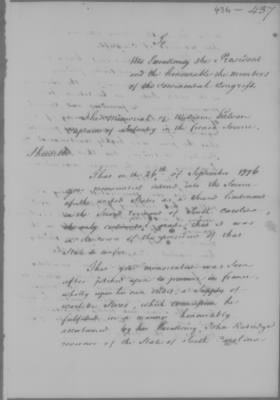 436 - 437
To
His Excellency the President
and the honourable the members
of the Continental Congress.
The Memorial of William
Captain of Infantry in the french Service.
Sheweth
That on the 26th of September 1776
your memorialist entered into the Service
of the united States as a second Lieutenant
in the Second regiment of South Carolina,
the only that it was
in the power of the president of that
State to confer.
That your memorialist was soon
after pitched upon to procure, in france,
wholly upon his own Credit, a Supply of
warlike Stores, which commission he
fulfilled in a manner honorably
ascertained by his Excellency, John Rutledge
Governor of the State of South Carolina.